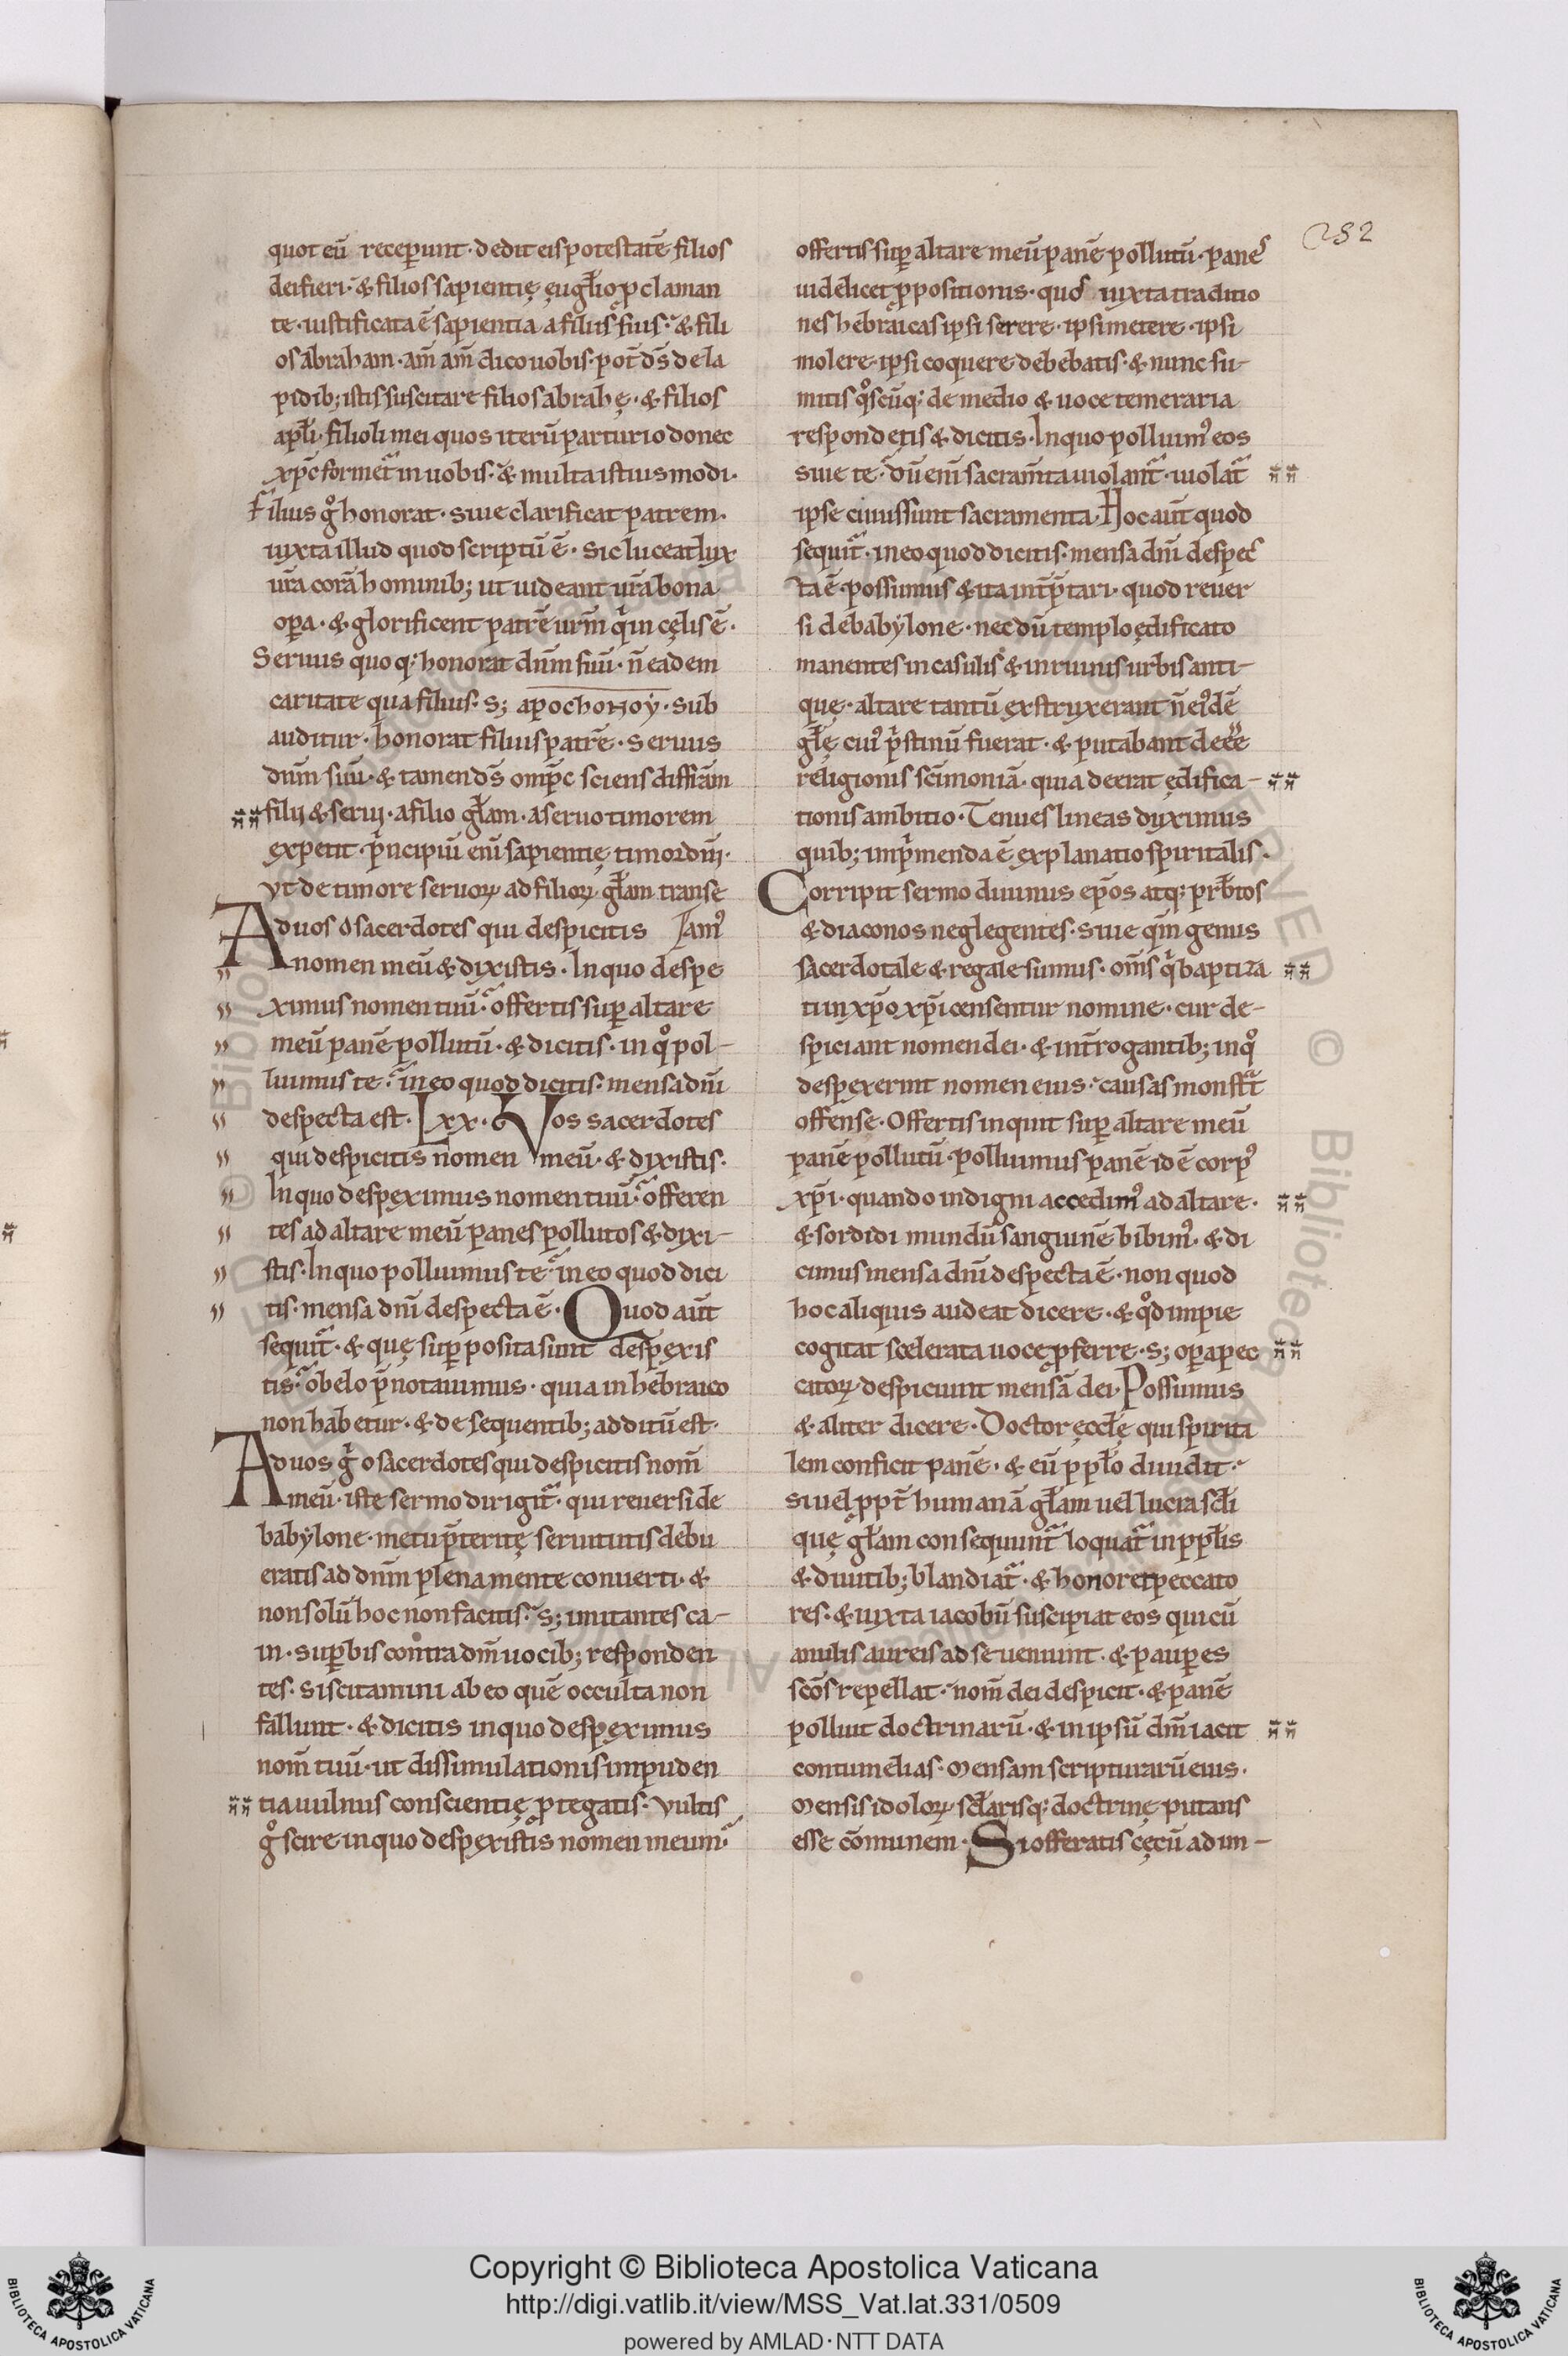 252
quot eū receperunt· dedit eis potestatē filios
dei fieri· & filios sapientię ęuglio ꝓclaman
te· iustificata ē sapientia a filiis suis· & fili
os abraham· am̄ am̄ dico uobis· pot̄ ds̄ de la
pidib; istis suscitare filios abrahę· & filios
apli· filioli mei quos iterū parturio donec
xpc̄ formet̄ in uobis· & multa istiusmodi·
Filius g̊ honorat· siue clarificat patrem·
iuxta illud quod scriptū ē· sic luceat lux
ur̄a corā hominib; ut uideant ur̄a bona
opa· & glorificent patrē urm̄ qui in cęlis ē·
Seruus quoq; honorat dnm̄ suū· n̄ eadem
caritate qua filius· s; apochonoy· sub
auditur· honorat filius patrē· seruus
dnm̄ suū· & tamen ds̄ omp̄c sciens diffiām
filij & serui· a filio glam· a seruo timorem
expetit· p̄ncipiū enī sapientię timor dnī·
ut de timore seruoꝝ ad filioꝝ glam transe
Ad uos o sacerdotes qui despicitis am'
nomen meū & dixistis· In quo despe
ximus nomen tuū· offertis suꝑ altare
meū panē pollutū· & dicitis· in qo pol-
luimus te· in eo quod dicitis· mensa dnī
despecta est· Lxx· Vos sacerdotes
qui despicitis nomen meū· & dixistis·
In quo despeximus nomen tuū· offeren
tes ad altare meū panes pollutos & dixi-
stis· In quo polluimus te· in eo quod dici
tis· mensa dnī despecta ē· Quod aūt
sequit̄· & quę suꝑposita sunt despexis
tis· obelo p̄notauimus· quia in hebraico
non habetur· & de sequentib; additū est·
Ad uos g̊ o sacerdotes qui despicitis nom̄
meū· iste sermo dirigit̄· qui reuersi de
babylone· metu p̄teritę seruitutis debu
eratis ad dnm̄ plena mente conuerti· &
non solū hoc non facitis· s; imitantes ca-
in· supbis contra dnm̄ uocib; responden
tes· siscitamini ab eo quē occulta non
fallunt· & dicitis in quo despeximus
nom̄ tuū· ut dissimulationis impuden
tia uulnus conscientię ꝓtegatis· Vultis
g̊ scire in quo despexistis nomen meum·
offertis suꝑ altare meū panē pollutū· panes
uidelicet ꝓpositionis· quos iuxta traditio
nes hebraicas ipsi serere· ipsi metere· ipsi
molere· ipsi coquere debebatis· & nunc su-
mitis q̊scūq; de medio & uoce temeraria
respondetis & dicitis· In quo polluim' eos
siue te· dū enī sacram̄ta uiolant̄· uiolat̄
ipse cuius sunt sacramenta· Hoc aūt quod
sequit̄· in eo quod dicitis· mensa dnī despec
ta ē· possumus & ita intp̄tari· quod reuer
si de babylone· necdū templo ędificato
manentes in casulis & in ruinis urbis anti-
quę· altare tantū exstruxerant n̄ ei'dē
glę cui' p̄stinū fuerat· & putabant deee
religionis scīmoniā· quia deerat ędifica-
tionis ambitio· Tenues lineas duximus
quib; imp̄menda ē explanatio spiritalis·
Corripit sermo diuinus epos atq; prbtos
& diaconos neglegentes· siue qm̄ genus
sacerdotale & regale sumus· oms̄ qui baptiza
ti in xpo xpi censentur nomine· cur de-
spiciant nomen dei· & int̄rogantib; in qo
despexerint nomen eius· causas monstrat̄
offense· Offertis inquit suꝑ altare meū
panē pollutū· polluimus panē id ē corp'
xpi· quando indigni accedim' ad altare·
& sordidi mundū sanguinē bibim'· & di
cimus mensa dnī despecta ē· non quod
hoc aliquis audeat dicere· & qod impie
cogitat scelerata uoce ꝓferre· s; opa pec
catoꝝ despiciunt mensā dei· Possumus
& aliter dicere· Doctor ęcclę qui spirita
lem conficit panē· & eū pplo diuidit·
si uel ꝓpt̄ humanā glam uel lucra scli
quę glam consequunt̄ loquat̄ in pplis
& diuitib; blandiat̄· & honoret pecca to
res· & iuxta iacobū suscipiat eos qui cū
anulis aureis ad se ueniunt· & pauꝑes
scōs repellat· nom̄ dei despicit· & panē
polluit doctrinarū· & in ipsū dnm̄ iacit
contumelias· Mensam scripturarū eius·
Mensis idoloꝝ sclarisq; doctrinę putans
esse cōmunem· Si offeratis cęcū ad im-
Copyright © Biblioteca Apostolica Vaticana
http://digi.vatlib.it/view/MSS_Vat.lat.331/0509
powered by AMLAD·NTT DATA
BIBLIOTECA APOSTOLICA VATICANA
BIBLIOTECA APOSTOLICA VATICANA